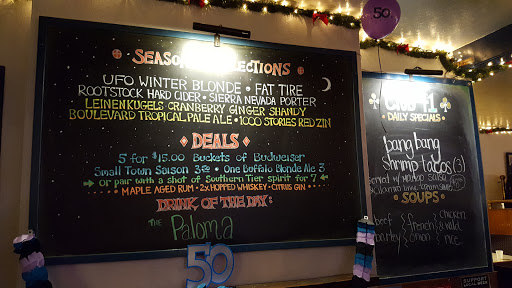 50
SEASONAL SELECTIONS
UFO WINTER BLONDE • FAT TIRE
ROOTSTOCK HARD CIDER • SIERRA NEVADA PORTER
LEINENKUGELS CRANBERRY GINGER SHANDY
BOULEVARD TROPICAL PALE ALE • 1000 STORIES RED ZIN
DEALS
5 for $15.00 Buckets of Budweiser
Small Town Saison 3 • One Buffalo Blonde Ale 3
or pair with a shot of Southern Tier spirit for 7
MAPLE AGED RUM • 2X HOPPED WHISKEY • CITRUS GIN •
DRINK OF THE DAY:
THE Paloma
50
DAILY SPECIALS
bang bang
shrimp tacos (3)
served w/
SOUPS
beef barley
french onion
chicken & wild rice
SUPPORT